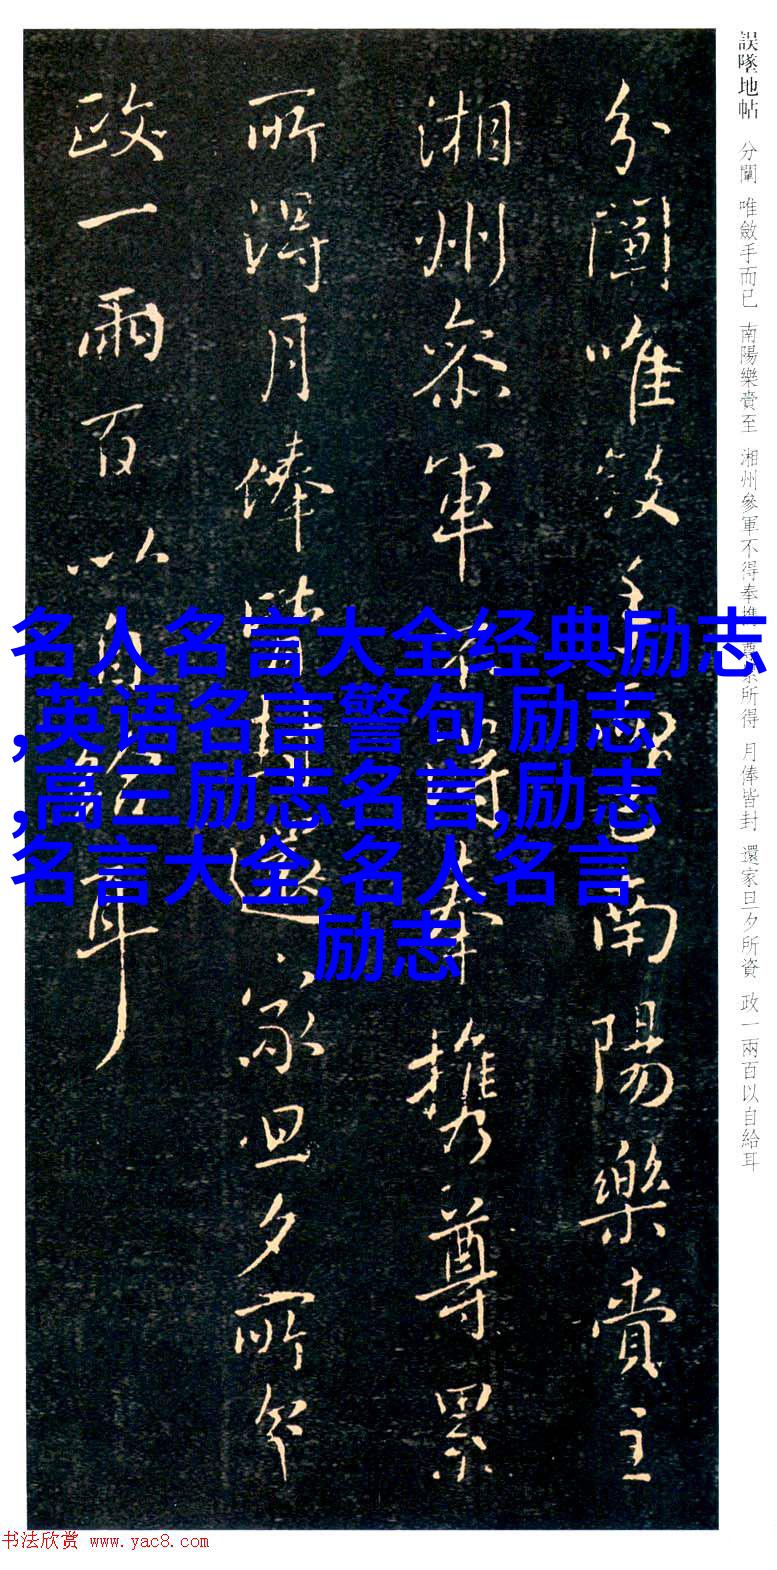 誤墜地帖 分闡 唯斂手而已 南陽樂賚至 湘州參軍不得奉攜尊累所得 月俸皆封 還家旦夕所資 政一兩百以自給耳
分闡唯斂手而已南陽樂賚至
湘州參軍不得奉攜尊累
所得月俸皆封還家旦夕所資
政一兩百以自給耳
名人名言大全经典励志
,英语名言警句 励志
,高三励志名言,励志
名言大全,名人名言
励志
书法欣赏 www.yac8.com